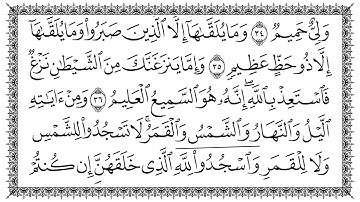 وَلِىٌّ حَمِيمٌ ٣٤ وَمَا يُلَقَّىٰهَآ إِلَّا ٱلَّذِينَ صَبَرُوا۟ وَمَا يُلَقَّىٰهَآ
إِلَّا ذُو حَظٍّ عَظِيمٍ ٣٥ وَإِمَّا يَنزَغَنَّكَ مِنَ ٱلشَّيْطَٰنِ نَزْغٌ
فَٱسْتَعِذْ بِٱللَّهِ ۖ إِنَّهُۥ هُوَ ٱلسَّمِيعُ ٱلْعَلِيمُ ٣٦ وَمِنْ ءَايَٰتِهِ
ٱلَّيْلُ وَٱلنَّهَارُ وَٱلشَّمْسُ وَٱلْقَمَرُ ۚ لَا تَسْجُدُوا۟ لِلشَّمْسِ
وَلَا لِلْقَمَرِ وَٱسْجُدُوا۟ لِلَّهِ ٱلَّذِى خَلَقَهُنَّ إِن كُنتُمْ